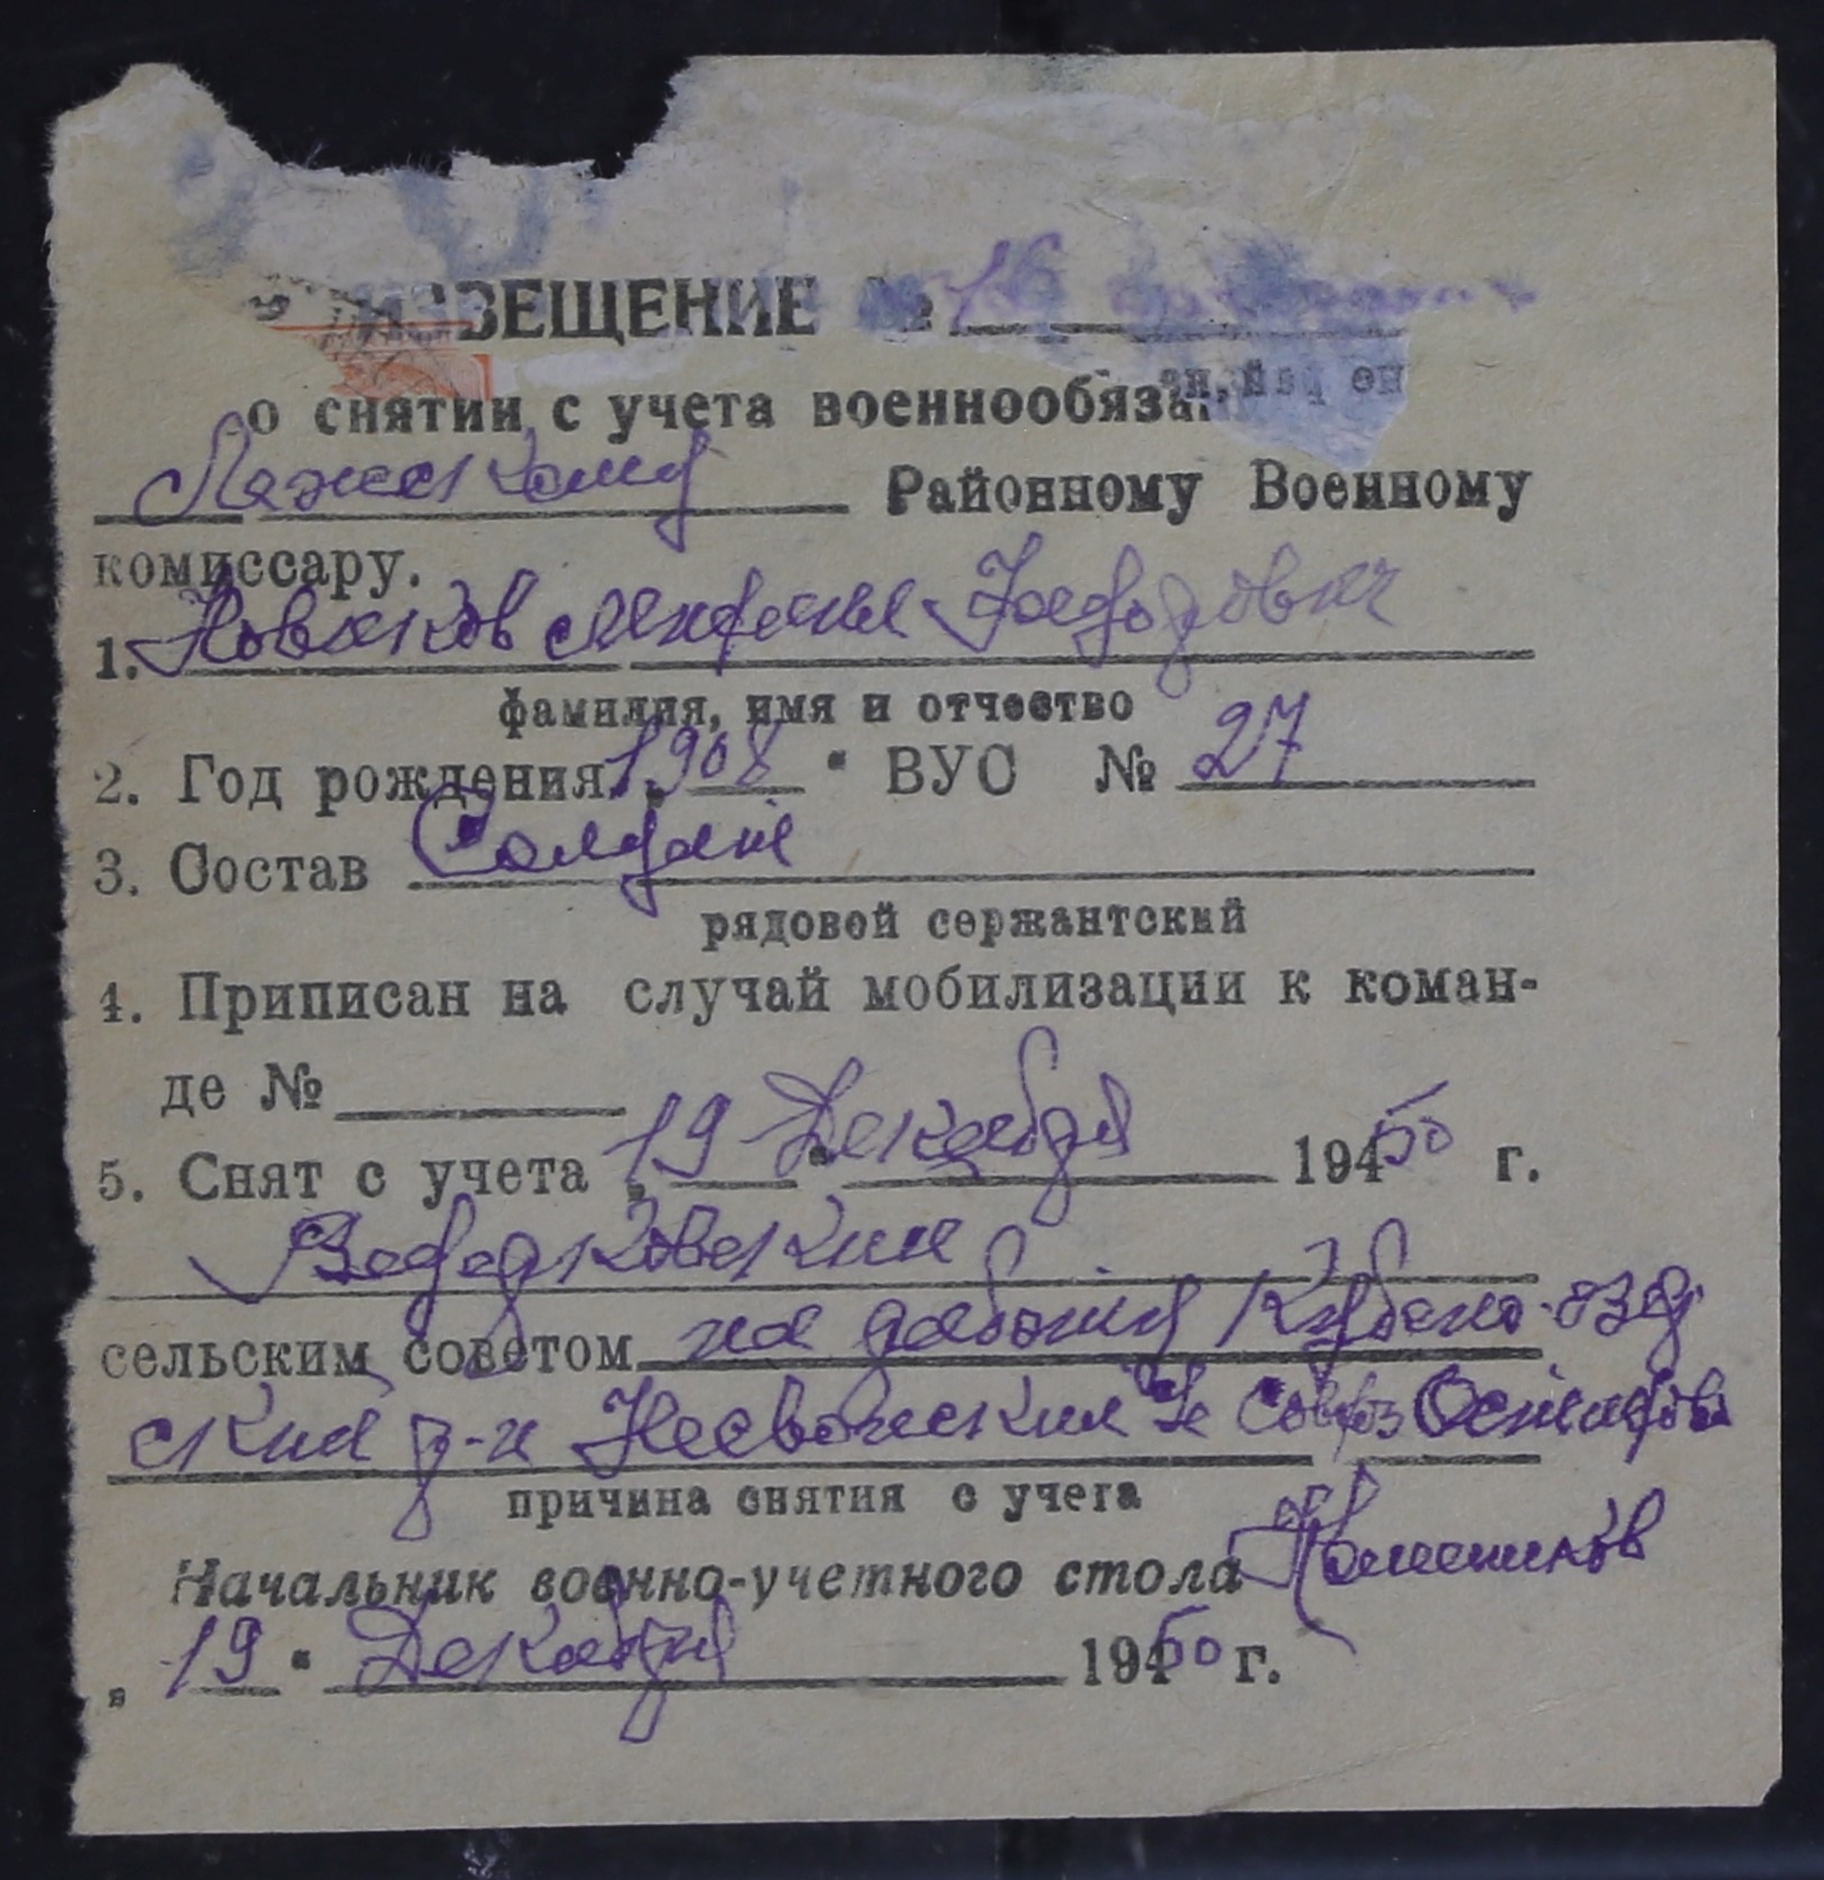 ИЗВЕЩЕНИЕ № 16
о снятии с учета военнообяза
Лежскому Районному Военному
комиссару.
1. Новиков Федорович
фамилия, имя и отчество
2. Год рождения 1908 ВУС № 27
3. Состав Солдат
рядовой сержантский
4. Приписан на случай мобилизации к коман-
де №
5. Снят с учета 19 Декабря 19450 г.
сельским советом на работу Кубено-озер
ский р-н
причина снятия с учета
Начальник военно-учетного стола
„ 19 " Декабря 19450 г.